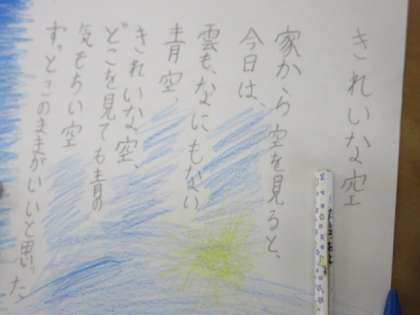 きれいな空
家から空を見ると、
今日は、
雲も、なにもない
青空、
きれいな空、
どこを見ても青の
気もちいい空
ずっとこのままがいいと思った、